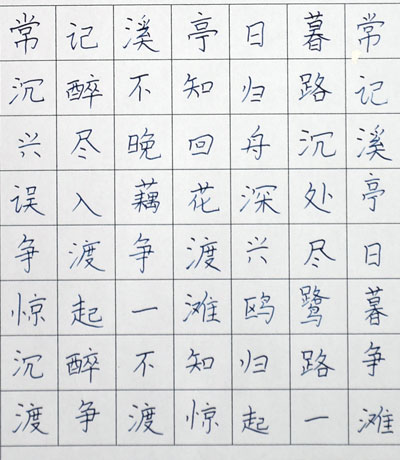 常记溪亭日暮常
沉醉不知归路记
兴尽晚回舟沉溪
误入藕花深处亭
争渡争渡兴尽日
惊起一滩鸥鹭暮
沉醉不知归路争
渡争渡惊起一滩